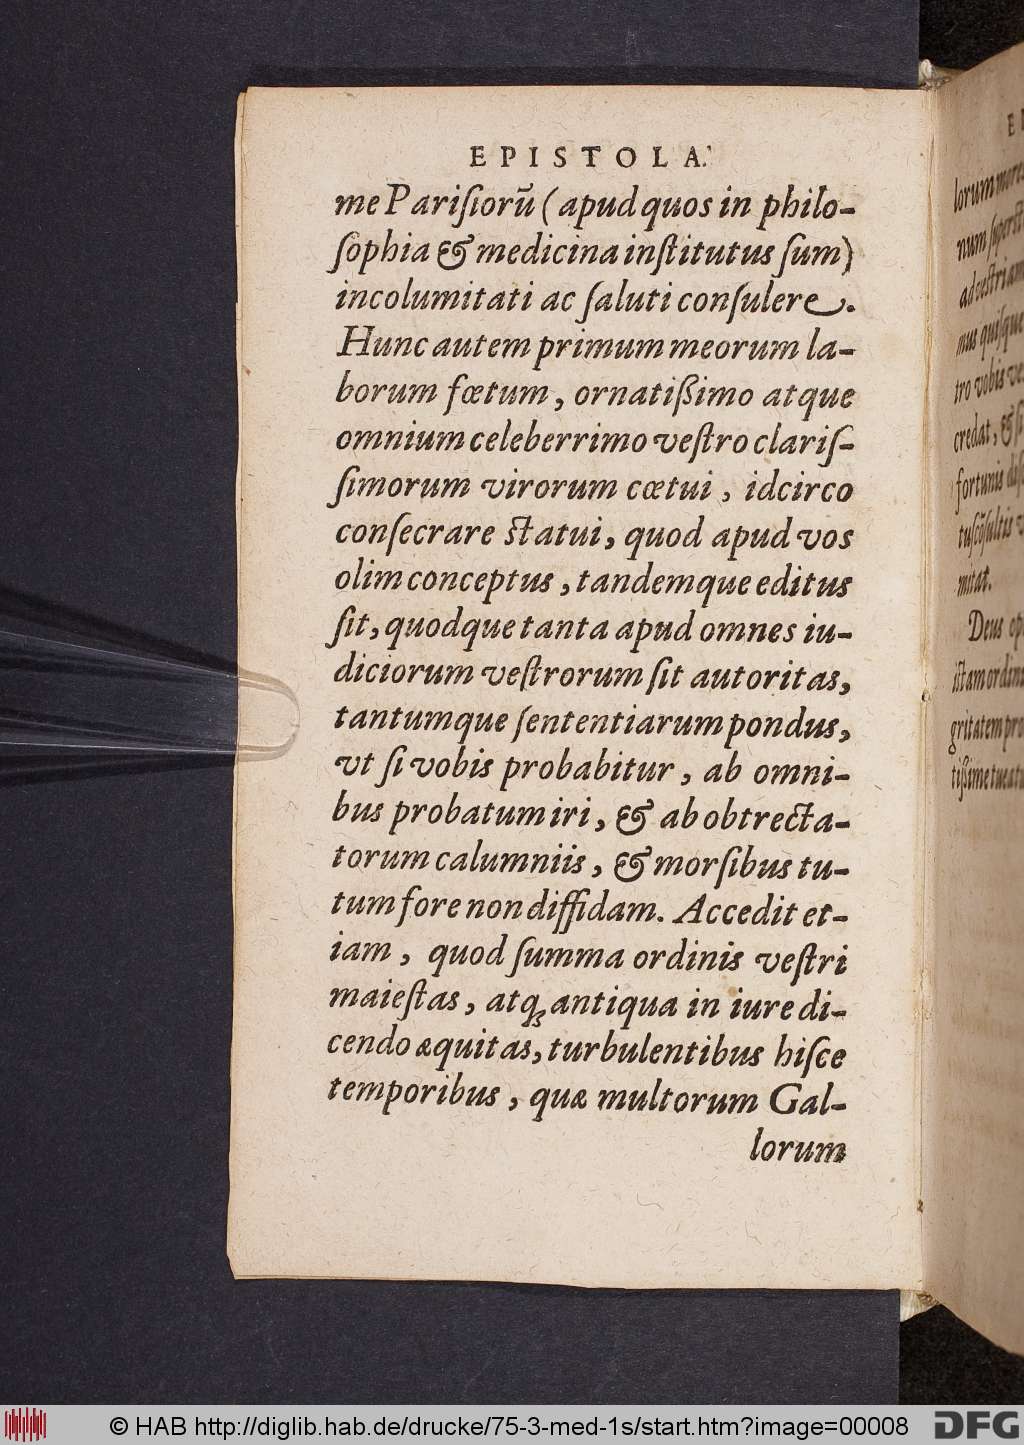 EPISTOLA.
me Pariſiorũ (apud quos in philo-
ſophia & medicina inſtitutus ſum)
incolumitati ac ſaluti conſulere.
Hunc autem primum meorum la-
borum fœtum, ornatißimo atque
omnium celeberrimo veſtro clariſ-
ſimorum virorum cœtui, idcirco
conſecrare ſtatui, quod apud vos
olim conceptus, tandemque editus
ſit, quodque tanta apud omnes iu-
diciorum veſtrorum ſit autoritas,
tantumque ſententiarum pondus,
vt ſi vobis probabitur, ab omni-
bus probatum iri, & ab obtrecta-
torum calumniis, & morſibus tu-
tum fore non diffidam. Accedit et-
iam, quod ſumma ordinis veſtri
maieſtas, atq; antiqua in iure di-
cendo æquitas, turbulentibus hiſce
temporibus, quæ multorum Gal-
lorum
lorum
num
mus quiſque
tro vobis
credat, & ſi
fortunis
mitat.
Deus
© HAB http://diglib.hab.de/drucke/75-3-med-1s/start.htm?image=00008
DFG